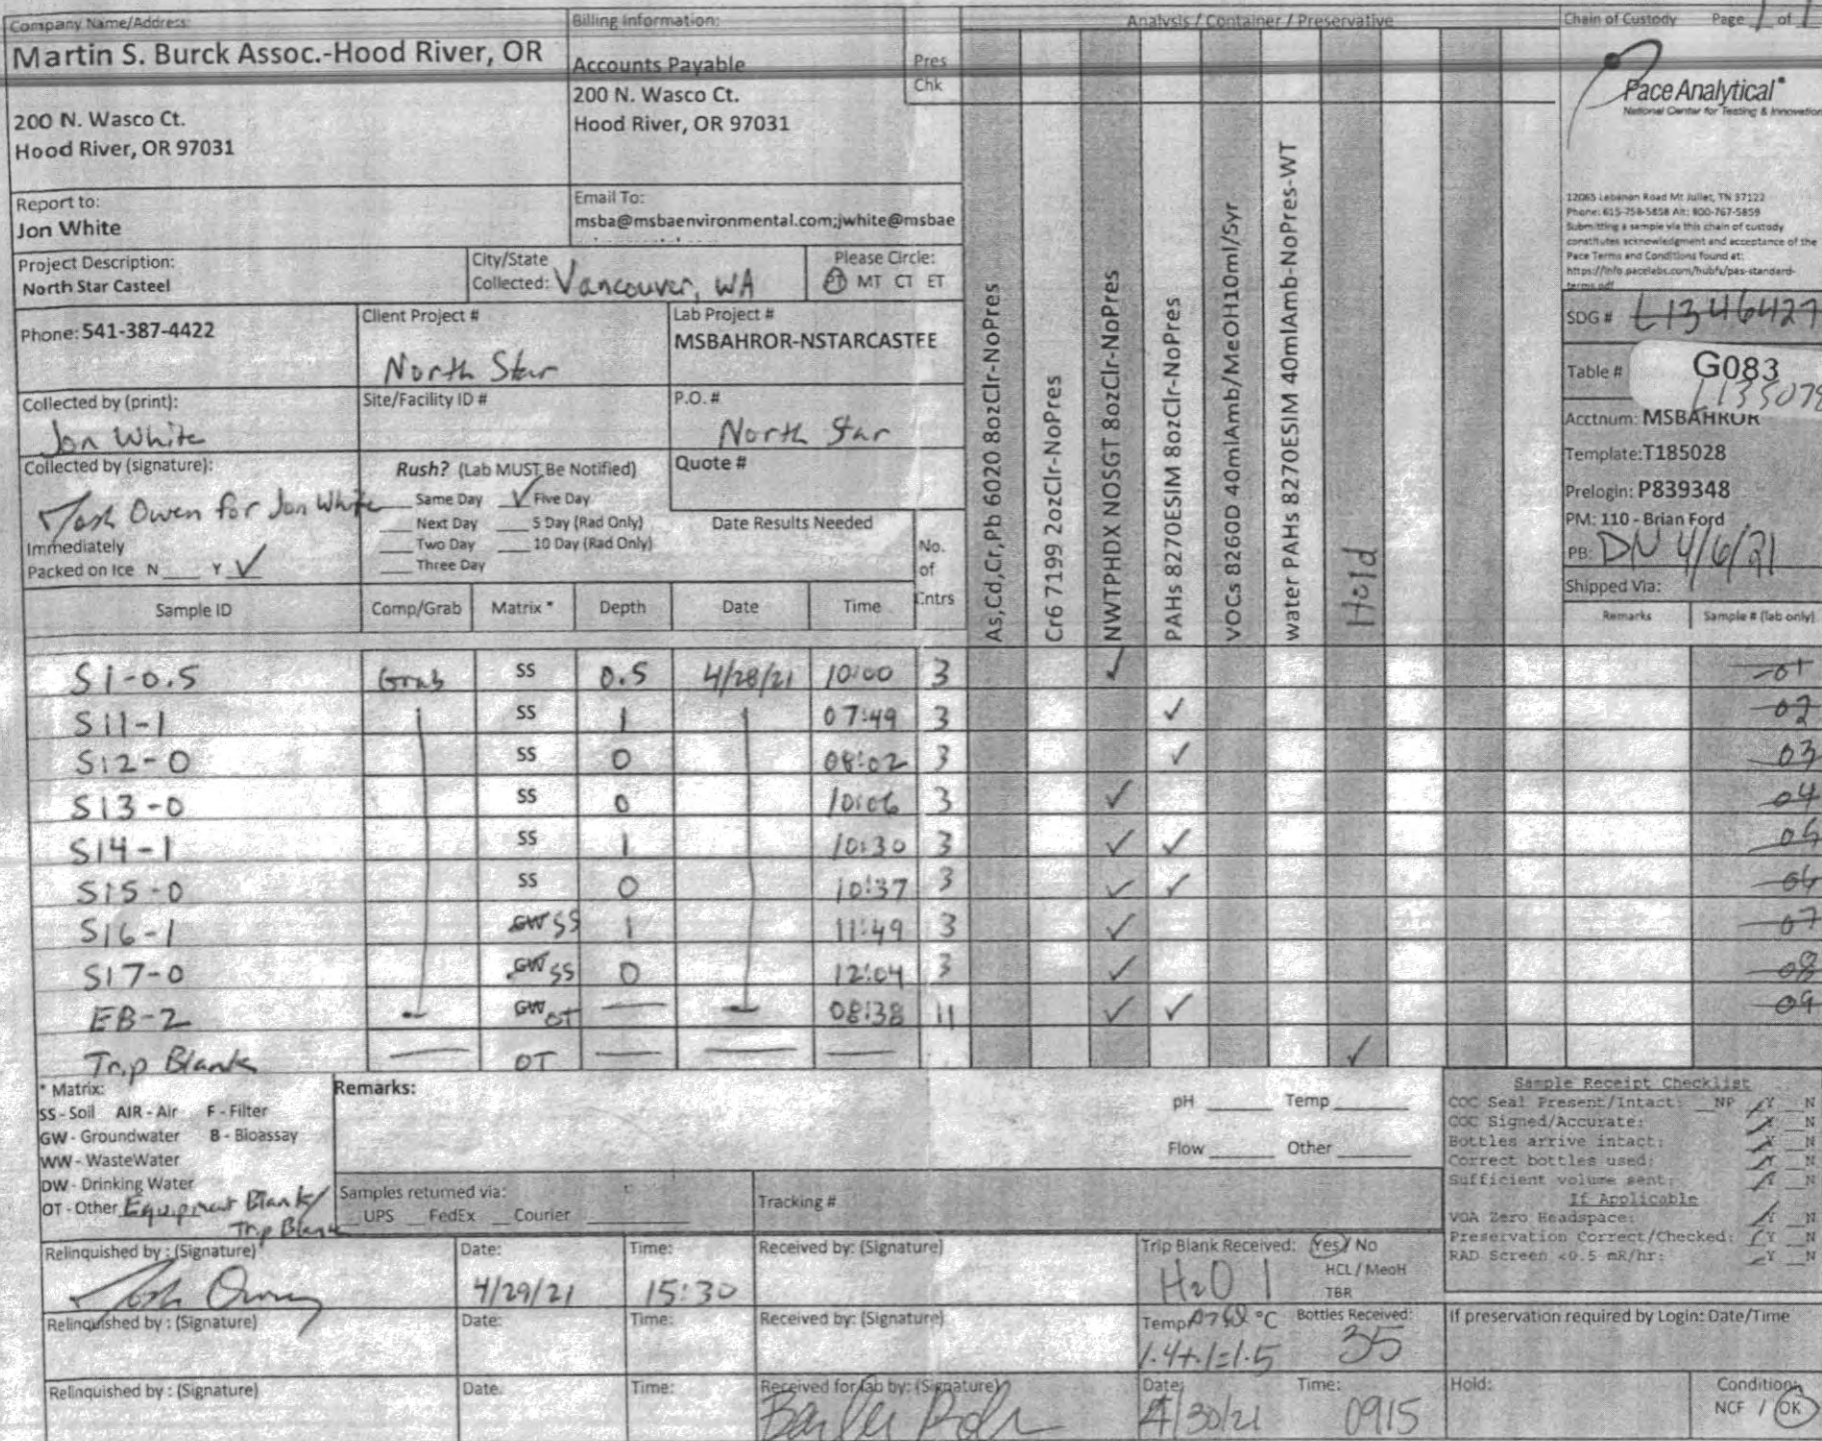 Company Name/Address:
Martin S. Burck Assoc.-Hood River, OR
200 N. Wasco Ct.
Hood River, OR 97031
Billing Information:
Accounts Payable
200 N. Wasco Ct.
Hood River, OR 97031
Pres
Chk
Analysis / Container / Preservative
Chain of Custody Page 1 of 1
Pace Analytical
National Center for Testing & Innovation
12065 Lebanon Road Mt Juliet, TN 37122
Phone: 615-758-5858 Alt: 800-767-5859
Submitting a sample via this chain of custody
constitutes acknowledgment and acceptance of the
Pace Terms and Conditions found at:
https://info.pacelabs.com/hubfs/pas-standard-
terms.pdf
Report to:
Jon White
Email To:
msba@msbaenvironmental.com;jwhite@msbae
Project Description:
North Star Casteel
City/State
Collected: Vancouver, WA
Please Circle:
PT MT CT ET
Phone: 541-387-4422
Client Project #
North Star
Lab Project #
MSBAHROR-NSTARCASTEE
Collected by (print):
Jon White
Site/Facility ID #
P.O. #
North Star
Collected by (signature):
Josh Owen for Jon White
Rush? (Lab MUST Be Notified)
Same Day ✓ Five Day
Next Day 5 Day (Rad Only)
Two Day 10 Day (Rad Only)
Three Day
Quote #
Date Results Needed
Immediately
Packed on Ice N Y ✓
No.
of
Cntrs
As,Cd,Cr,Pb 6020 8ozClr-NoPres
Cr6 7199 2ozClr-NoPres
NWTPHDX NOSGT 8ozClr-NoPres
PAHs 8270ESIM 8ozClr-NoPres
VOCs 8260D 40mlAmb/MeOH10ml/Syr
water PAHs 8270ESIM 40mlAmb-NoPres-WT
Hold
SDG # L1346427
Table # G083
Acctnum: MSBAHROR
Template:T185028
Prelogin: P839348
PM: 110 - Brian Ford
PB: DN 4/6/21
Shipped Via:
Remarks Sample # (lab only)
Sample ID Comp/Grab Matrix * Depth Date Time
S1-0.5 Grab SS 0.5 4/28/21 10:00 3 ✓ -01
S11-1 SS 1 07:49 3 ✓ 02
S12-0 SS 0 08:02 3 ✓ 03
S13-0 SS 0 10:06 3 ✓ 04
S14-1 SS 1 10:30 3 ✓ ✓ 05
S15-0 SS 0 10:37 3 ✓ ✓ 06
S16-1 GW SS 1 11:49 3 ✓ 07
S17-0 GW SS 0 12:04 3 ✓ 08
EB-2 GW OT — 08:38 11 ✓ ✓ 09
Trip Blank — OT — — — ✓
* Matrix:
SS - Soil AIR - Air F - Filter
GW - Groundwater B - Bioassay
WW - WasteWater
DW - Drinking Water
OT - Other Equipment Blank/
Trip Blank
Remarks:
pH Temp
Flow Other
Samples returned via:
UPS FedEx Courier
Tracking #
Sample Receipt Checklist
COC Seal Present/Intact: NP Y N
COC Signed/Accurate: Y N
Bottles arrive intact: Y N
Correct bottles used: Y N
Sufficient volume sent: Y N
If Applicable
VOA Zero Headspace: Y N
Preservation Correct/Checked: Y N
RAD Screen <0.5 mR/hr: Y N
Relinquished by : (Signature)
Josh Owen
Date:
4/29/21
Time:
15:30
Received by: (Signature)
Trip Blank Received: Yes / No
H2O 1
HCL / MeoH
TBR
Relinquished by : (Signature)
Date:
Time:
Received by: (Signature)
Temp: °C
1.4+.1=1.5
Bottles Received:
35
If preservation required by Login: Date/Time
Relinquished by : (Signature)
Date:
Time:
Received for lab by: (Signature)
Date:
4/30/21
Time:
0915
Hold:
Condition:
NCF / OK